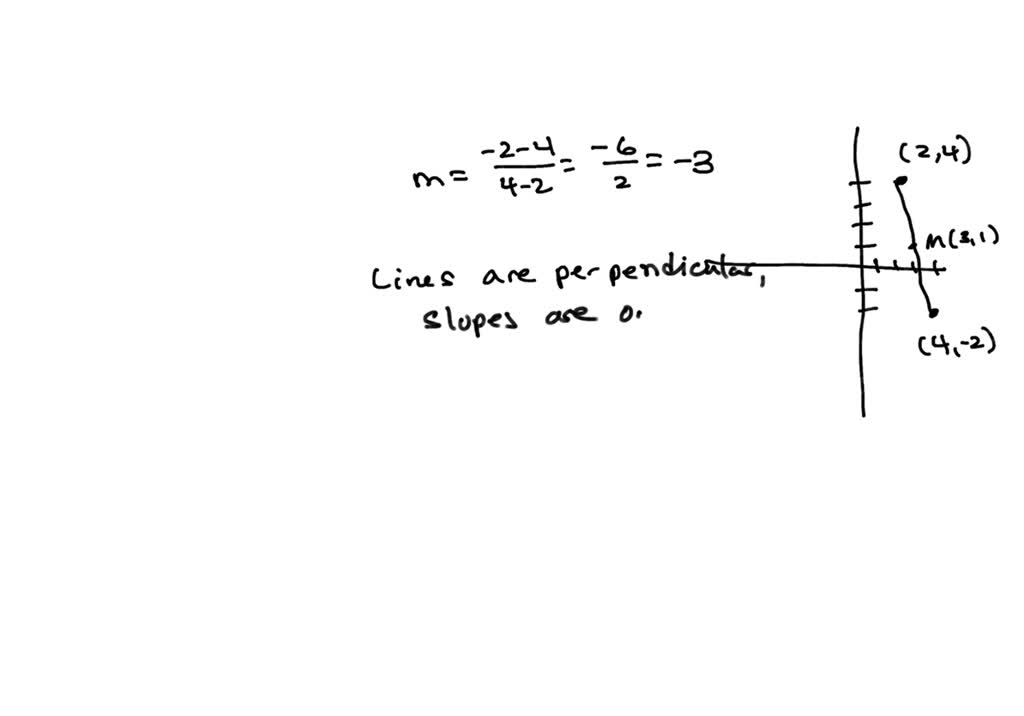 m = \frac{-2-4}{4-2} = \frac{-6}{2} = -3
(2,4)
M(3,1)
Lines are perpendicular,
slopes are o.
(4,-2)